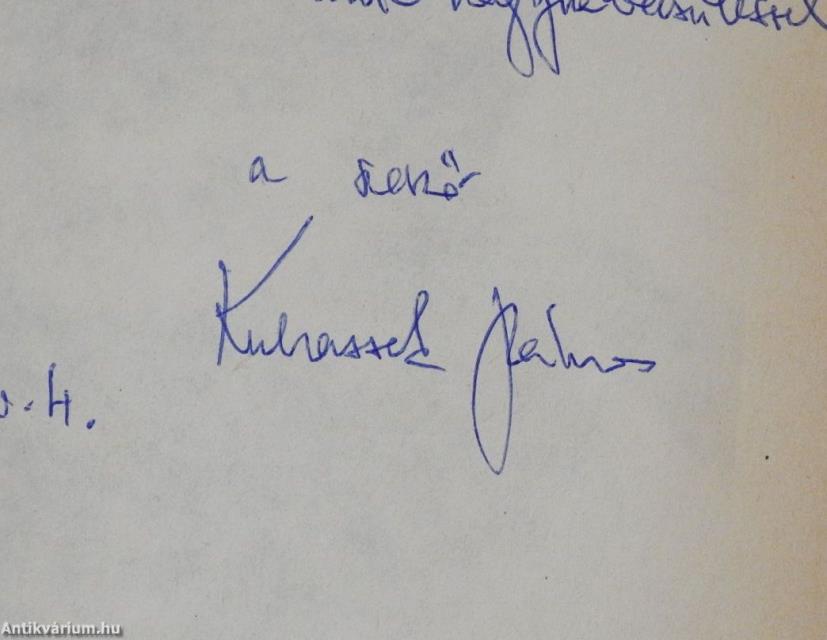 nagyrabecsüléssel
a szerző
Kubassek János
4.
Antikvárium.hu